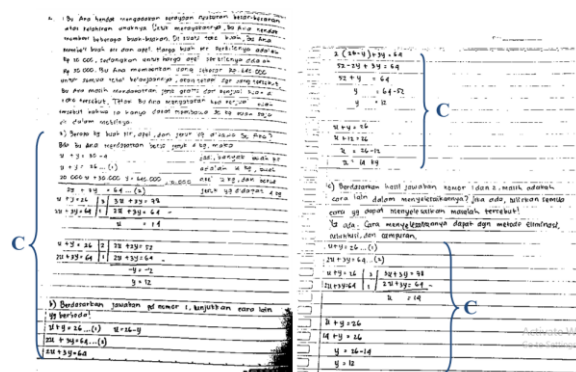 1 Bu Ana hendak mengadakan perayaan syukuran besar-besaran
atas kelahiran anaknya. Untuk merayakannya, Bu Ana hendak
membeli beberapa buah-buahan. Di suatu toko buah, Bu Ana
membeli buah pir dan apel. Harga buah pir perkilonya adalah
Rp 20.000, sedangkan untuk harga apel perkilonya adalah
Rp 30.000. Bu Ana memberikan uang sebesar Rp. 645.000
untuk semua total belanjaannya,
Bu Ana masih mendapatkan jeruk gratis dari penjual buah
toko tersebut. Tetapi Bu Ana mengatakan kepada penjual buah
tersebut bahwa ia hanya dapat membawa 30 kg buah saja
di dalam mobilnya.
a) Berapa kg buah pir, apel, dan jeruk yg dibawa Bu Ana?
Bu Ana mendapatkan berat jeruk 4 kg, maka
x + y = 30-4
x + y = 26 ...(1)
2x + 3y = 64 ...(2)
x + y = 26 | 3 | 3x + 3y = 78
2x + 3y = 64 | 1 | 2x + 3y = 64 -
x = 14
x + y = 26 | 2 | 2x + 2y = 52
2x + 3y = 64 | 1 | 2x + 3y = 64 -
-y = -12
y = 12
C
b) Berdasarkan jawaban pd nomor 1, tunjukkan cara lain
yg berbeda!
x + y = 26 ...(1) x = 26-y
2x + 3y = 64 ...(2)
2x + 3y = 64
2 (26-y) + 3y = 64
52 - 2y + 3y = 64
52 + y = 64
y = 64-52
y = 12
x + y = 26
x + 12 = 26
x = 26-12
x = 14 kg
C
c) Berdasarkan hasil jawaban nomor 1 dan 2, masih adakah
cara lain dalam menyelesaikannya? Jika ada, tuliskan semua
cara yg dapat menyelesaikan masalah tersebut!
Ya ada. Cara menyelesaikannya dapat dgn metode eliminasi,
substitusi, dan campuran.
x + y = 26 ...(1)
2x + 3y = 64 ...(2)
x + y = 26 | 3 | 3x + 3y = 78
2x + 3y = 64 | 1 | 2x + 3y = 64 -
x = 14
x + y = 26
14 + y = 26
y = 26-14
y = 12
C